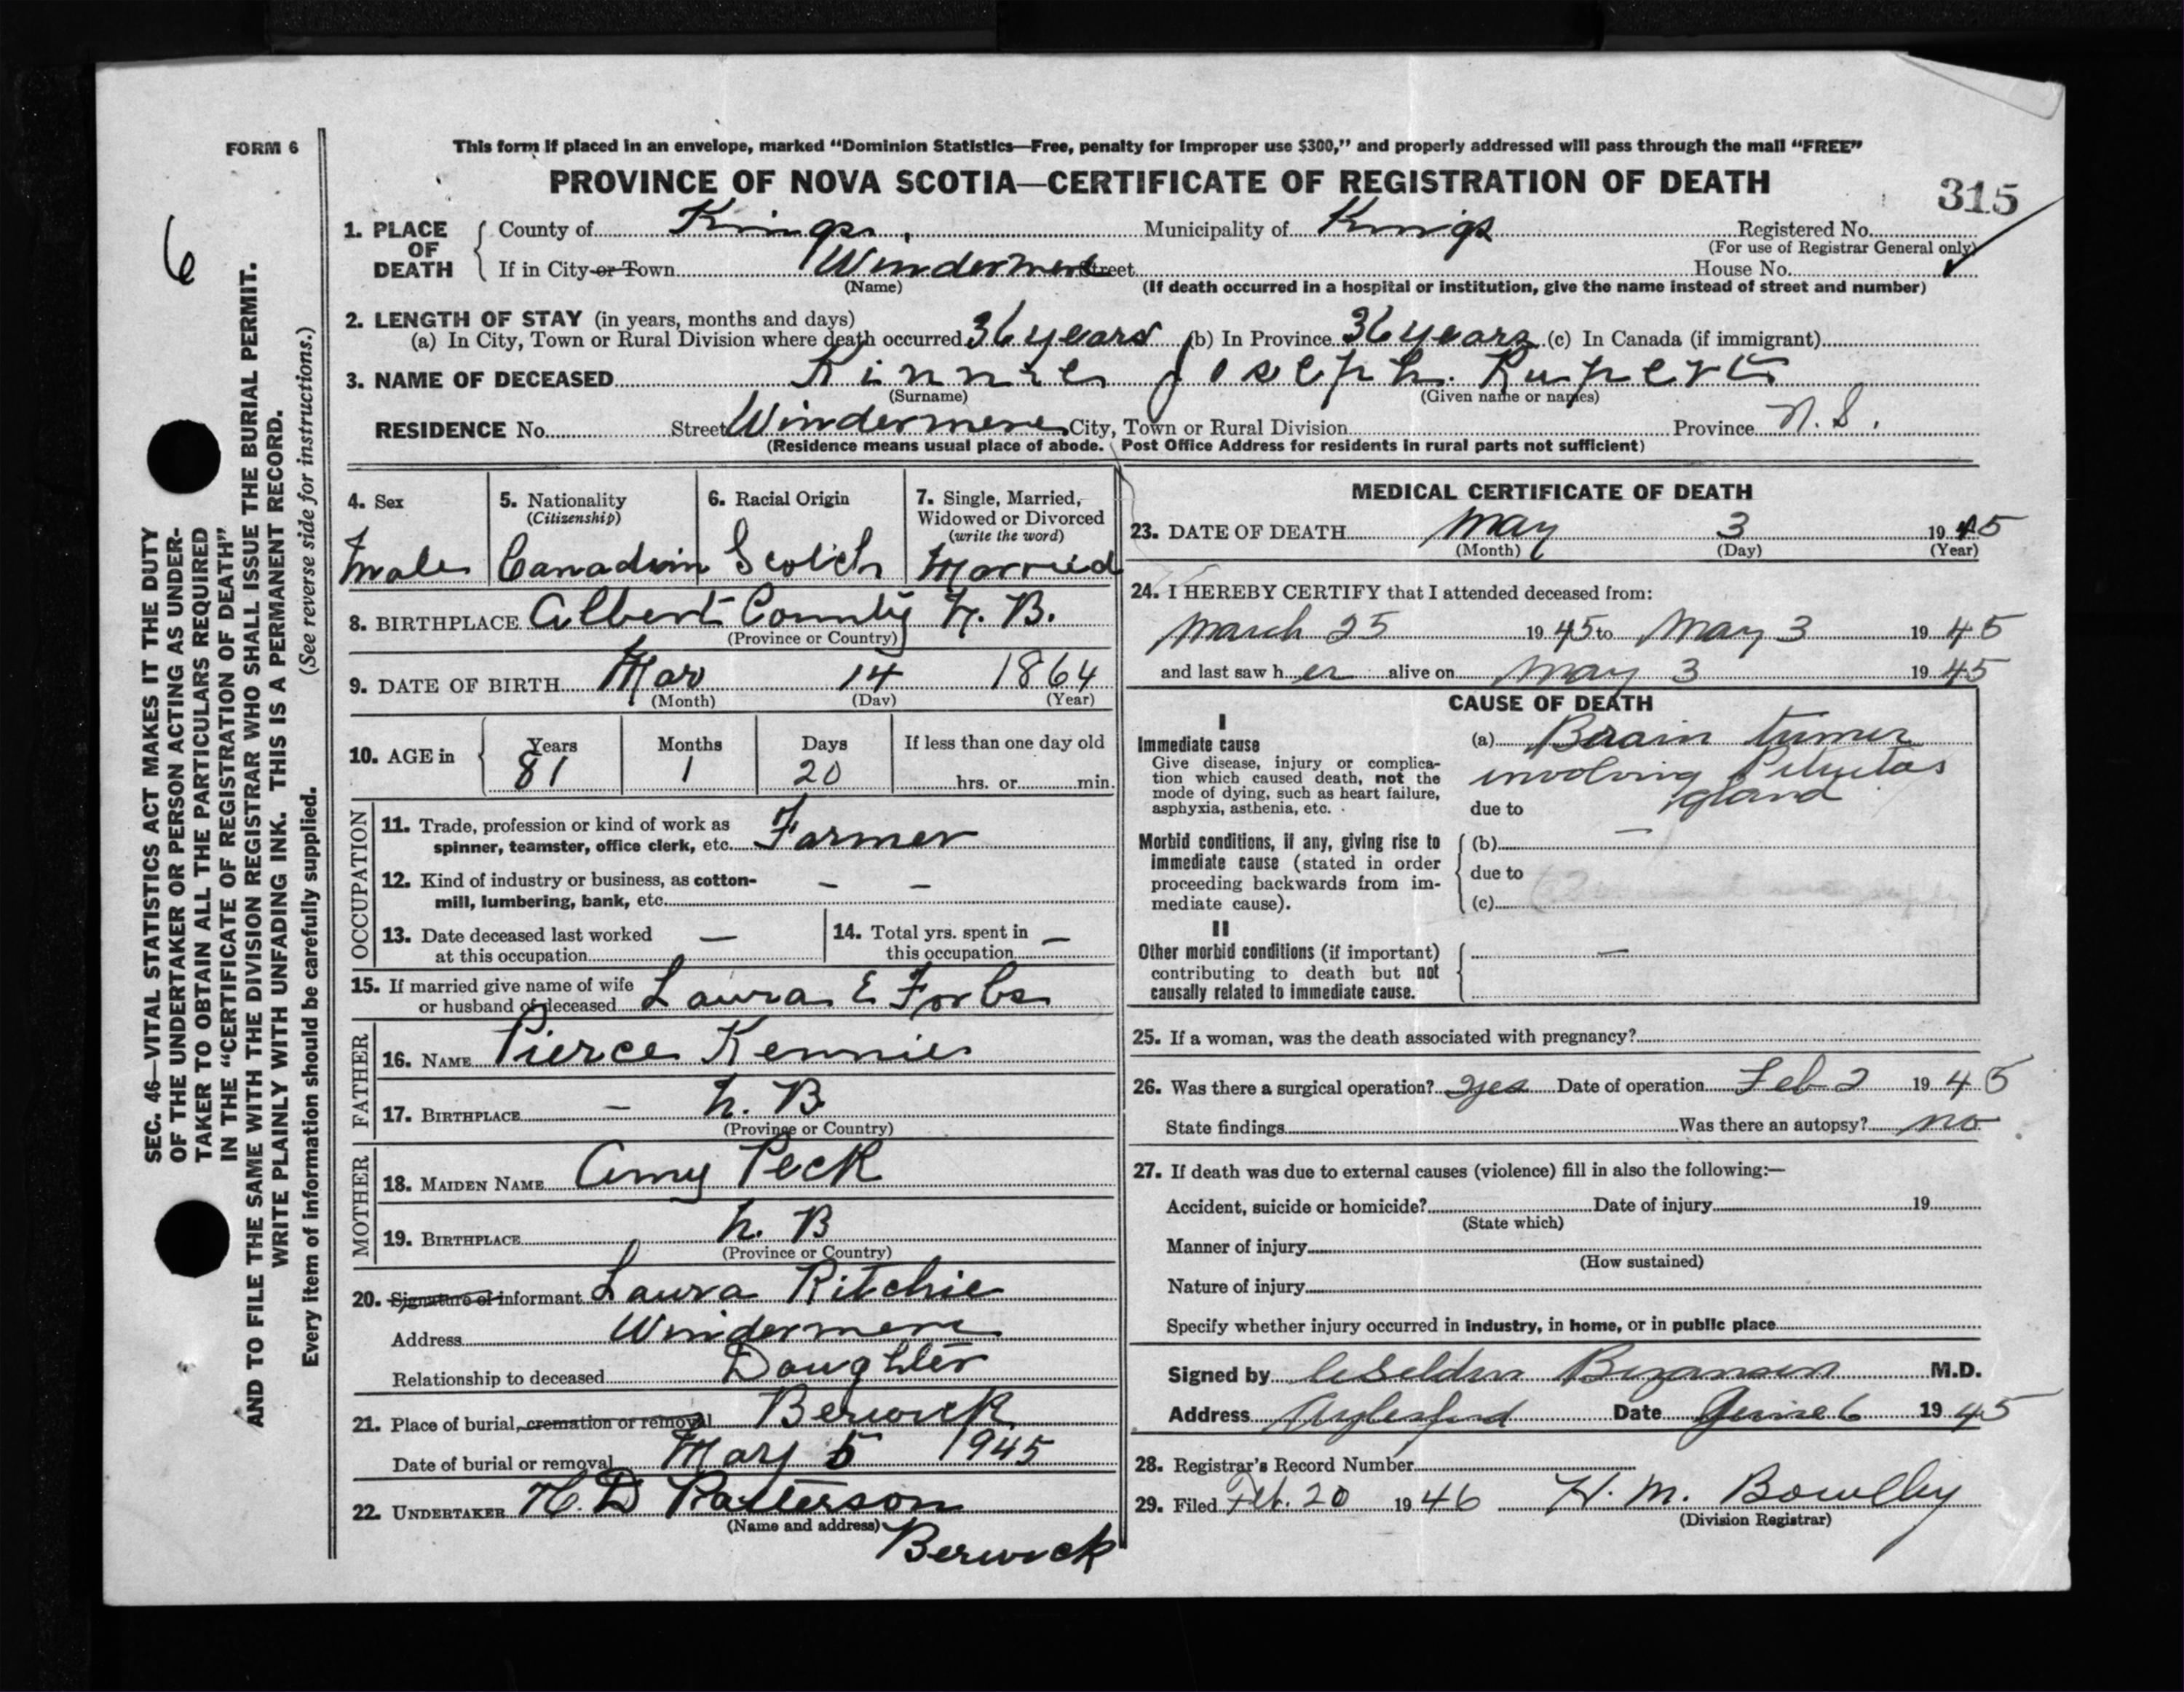 FORM 6
This form if placed in an envelope, marked "Dominion Statistics—Free, penalty for improper use $300," and properly addressed will pass through the mail "FREE"
PROVINCE OF NOVA SCOTIA—CERTIFICATE OF REGISTRATION OF DEATH
315
6
SEC. 46—VITAL STATISTICS ACT MAKES IT THE DUTY
OF THE UNDERTAKER OR PERSON ACTING AS UNDER-
TAKER TO OBTAIN ALL THE PARTICULARS REQUIRED
IN THE "CERTIFICATE OF REGISTRATION OF DEATH"
AND TO FILE THE SAME WITH THE DIVISION REGISTRAR WHO SHALL ISSUE THE BURIAL PERMIT.
WRITE PLAINLY WITH UNFADING INK. THIS IS A PERMANENT RECORD.
Every item of information should be carefully supplied. (See reverse side for instructions.)
1. PLACE OF DEATH
County of Kings Municipality of Kings Registered No.
(For use of Registrar General only)
If in City or Town Windermere Street House No.
(Name) (If death occurred in a hospital or institution, give the name instead of street and number)
2. LENGTH OF STAY (in years, months and days)
(a) In City, Town or Rural Division where death occurred 36 years (b) In Province 36 years (c) In Canada (if immigrant)
3. NAME OF DECEASED Kinnie Joseph Rupert
(Surname) (Given name or names)
RESIDENCE No. Street Windermere City, Town or Rural Division Province N.S.
(Residence means usual place of abode. Post Office Address for residents in rural parts not sufficient)
4. Sex
Male
5. Nationality
(Citizenship)
Canadian
6. Racial Origin
Scotch
7. Single, Married,
Widowed or Divorced
(write the word)
Married
8. BIRTHPLACE Albert County N.B.
(Province or Country)
9. DATE OF BIRTH Mar 14 1864
(Month) (Day) (Year)
10. AGE in Years Months Days If less than one day old
81 1 20 hrs. or min.
OCCUPATION
11. Trade, profession or kind of work as
spinner, teamster, office clerk, etc. Farmer
12. Kind of industry or business, as cotton-
mill, lumbering, bank, etc. — —
13. Date deceased last worked
at this occupation —
14. Total yrs. spent in
this occupation —
15. If married give name of wife
or husband of deceased Laura E Forbs
FATHER
16. NAME Pierce Kennie
17. BIRTHPLACE — N. B.
(Province or Country)
MOTHER
18. MAIDEN NAME Amy Peck
19. BIRTHPLACE N. B
(Province or Country)
20. Signature of informant Laura Ritchie
Address Windermere
Relationship to deceased Daughter
21. Place of burial, cremation or removal Berwick
Date of burial or removal May 5 1945
22. UNDERTAKER H. D Patterson
(Name and address) Berwick
MEDICAL CERTIFICATE OF DEATH
23. DATE OF DEATH May 3 1945
(Month) (Day) (Year)
24. I HEREBY CERTIFY that I attended deceased from:
March 25 1945 to May 3 1945
and last saw h er alive on May 3 1945
CAUSE OF DEATH
I
Immediate cause
Give disease, injury or complica-
tion which caused death, not the
mode of dying, such as heart failure,
asphyxia, asthenia, etc.
(a) Brain tumer
involving
due to gland
Morbid conditions, if any, giving rise to
immediate cause (stated in order
proceeding backwards from im-
mediate cause).
(b) —
due to
(c)
II
Other morbid conditions (if important)
contributing to death but not
causally related to immediate cause.
—
25. If a woman, was the death associated with pregnancy?
26. Was there a surgical operation? yes Date of operation Feb 2 1945
State findings Was there an autopsy? no
27. If death was due to external causes (violence) fill in also the following:—
Accident, suicide or homicide? Date of injury 19
(State which)
Manner of injury
(How sustained)
Nature of injury
Specify whether injury occurred in industry, in home, or in public place
Signed by Bezanson M.D.
Address Aylesford Date June 6 1945
28. Registrar's Record Number
29. Filed Feb. 20 1946 H. M. Bowlby
(Division Registrar)